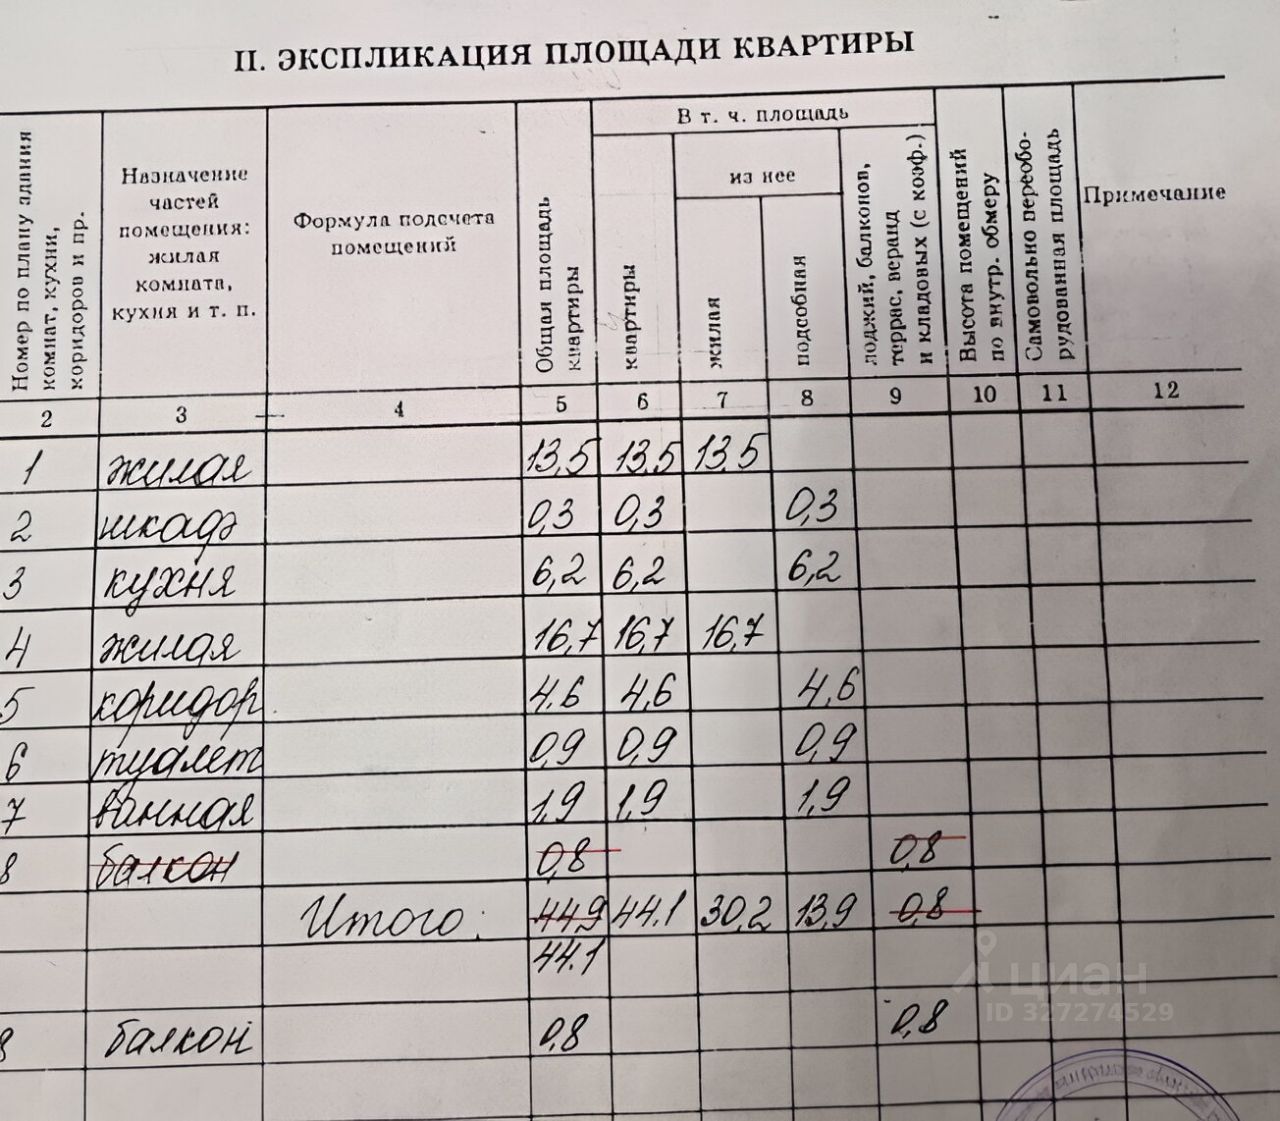 II. ЭКСПЛИКАЦИЯ ПЛОЩАДИ КВАРТИРЫ
Номер по плану здания комнат, кухни, коридоров и пр.
Назначение частей помещения: жилая комната, кухня и т. п.
Формула подсчета помещений
Общая площадь квартиры
В т. ч. площадь
квартиры
из нее
жилая
подсобная
лоджий, балконов, террас, веранд и кладовых (с коэф.)
Высота помещений по внутр. обмеру
Самовольно переоборудованная площадь
Примечание
2 3 4 5 6 7 8 9 10 11 12
1 жилая 13,5 13,5 13,5
2 шкаф 0,3 0,3 0,3
3 кухня 6,2 6,2 6,2
4 жилая 16,7 16,7 16,7
5 коридор 4.6 4,6 4,6
6 туалет 0,9 0,9 0,9
7 ванная 1,9 1,9 1,9
8 балкон 0,8 0,8
Итого: 44,9 44.1 30,2 13,9 0,8
44.1
8 балкон 0,8 0,8
циан
ID 327274529